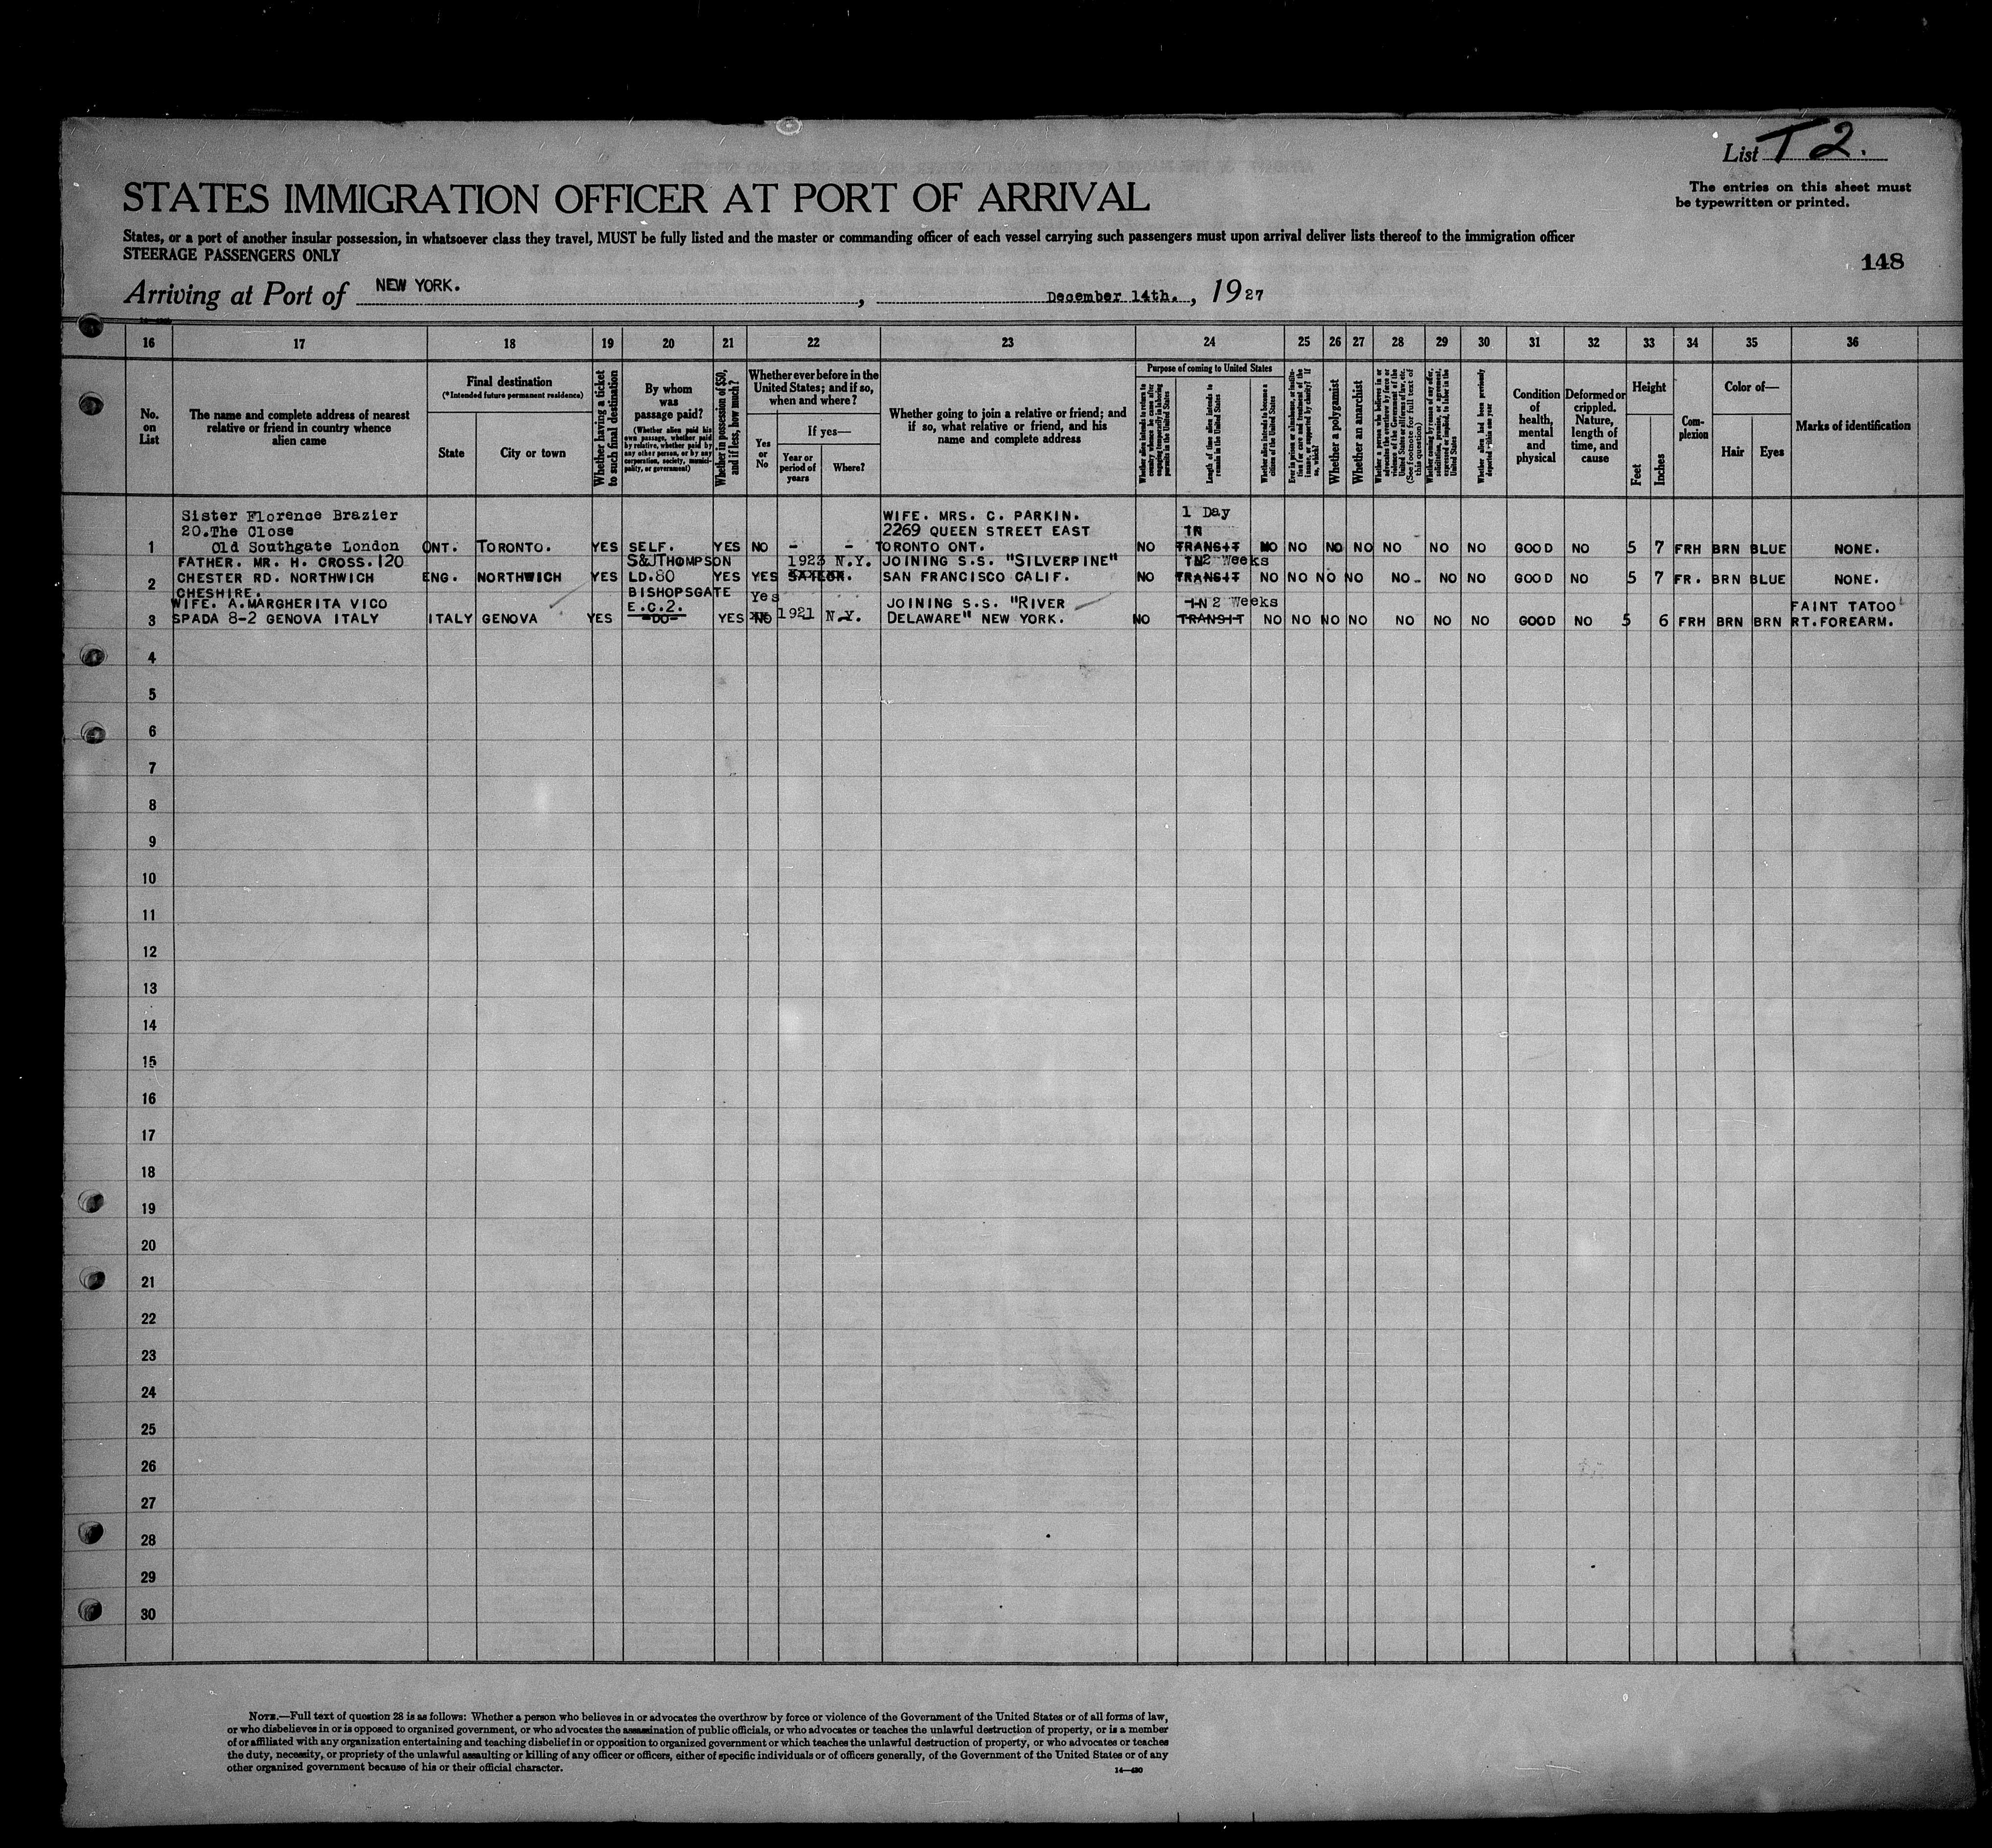 List T 2.
The entries on this sheet must
be typewritten or printed.
STATES IMMIGRATION OFFICER AT PORT OF ARRIVAL
States, or a port of another insular possession, in whatsoever class they travel, MUST be fully listed and the master or commanding officer of each vessel carrying such passengers must upon arrival deliver lists thereof to the immigration officer
STEERAGE PASSENGERS ONLY
148
Arriving at Port of NEW YORK. , December 14th. , 1927
16 17 18 19 20 21 22 23 24 25 26 27 28 29 30 31 32 33 34 35 36
No.
on
List
The name and complete address of nearest
relative or friend in country whence
alien came
Final destination
(*Intended future permanent residence)
State
City or town
Whether having a ticket
to such final destination
By whom
was
passage paid?
(Whether alien paid his
own passage, whether paid
by relative, whether paid by
any other person, or by any
corporation, society, munici-
pality, or government)
Whether in possession of $50,
and if less, how much?
Whether ever before in the
United States; and if so,
when and where?
Yes
or
No
If yes—
Year or
period of
years
Where?
Whether going to join a relative or friend; and
if so, what relative or friend, and his
name and complete address
Purpose of coming to United States
Whether alien intends to return to
country whence he came after
engaging temporarily in laboring
pursuits in the United States
Length of time alien intends to
remain in the United States
Whether alien intends to become a
citizen of the United States
Ever in prison or almshouse, or institu-
tion for care and treatment of the
insane, or supported by charity? If
so, which?
Whether a polygamist
Whether an anarchist
Whether a person who believes in or
advocates the overthrow by force or
violence of the Government of the
United States or all forms of law, etc.
(See footnote for full text of
this question)
Whether coming by reason of any offer,
solicitation, promise, or agreement,
expressed or implied, to labor in the
United States
Whether alien had been previously
deported within one year
Condition
of
health,
mental
and
physical
Deformed or
crippled.
Nature,
length of
time, and
cause
Height
Feet
Inches
Com-
plexion
Color of—
Hair
Eyes
Marks of identification
Sister Florence Brazier WIFE. MRS. C. PARKIN. 1 Day
20.The Close 2269 QUEEN STREET EAST IN
1 Old Southgate London ONT. TORONTO. YES SELF. YES NO - - TORONTO ONT. NO TRANSIT NO NO NO NO NO NO NO GOOD NO 5 7 FRH BRN BLUE NONE.
FATHER. MR. H. CROSS.120 S&JTHOMPSON 1923 N.Y. JOINING S.S. "SILVERPINE" IN2 Weeks
2 CHESTER RD. NORTHWICH ENG. NORTHWICH YES LD.80 YES YES SAILOR. SAN FRANCISCO CALIF. NO TRANSIT NO NO NO NO NO NO NO GOOD NO 5 7 FR. BRN BLUE NONE.
CHESHIRE. BISHOPSGATE Yes
WIFE. A.MARGHERITA VICO E.C.2. JOINING S.S. "RIVER IN 2 Weeks FAINT TATOO
3 SPADA 8-2 GENOVA ITALY ITALY GENOVA YES -DO- YES NO 1921 N.Y. DELAWARE" NEW YORK. NO TRANSIT NO NO NO NO NO NO NO GOOD NO 5 6 FRH BRN BRN RT.FOREARM.
4
5
6
7
8
9
10
11
12
13
14
15
16
17
18
19
20
21
22
23
24
25
26
27
28
29
30
NOTE.—Full text of question 28 is as follows: Whether a person who believes in or advocates the overthrow by force or violence of the Government of the United States or of all forms of law,
or who disbelieves in or is opposed to organized government, or who advocates the assassination of public officials, or who advocates or teaches the unlawful destruction of property, or is a member
of or affiliated with any organization entertaining and teaching disbelief in or opposition to organized government or which teaches the unlawful destruction of property, or who advocates or teaches
the duty, necessity, or propriety of the unlawful assaulting or killing of any officer or officers, either of specific individuals or of officers generally, of the Government of the United States or of any
other organized government because of his or their official character.
14—430